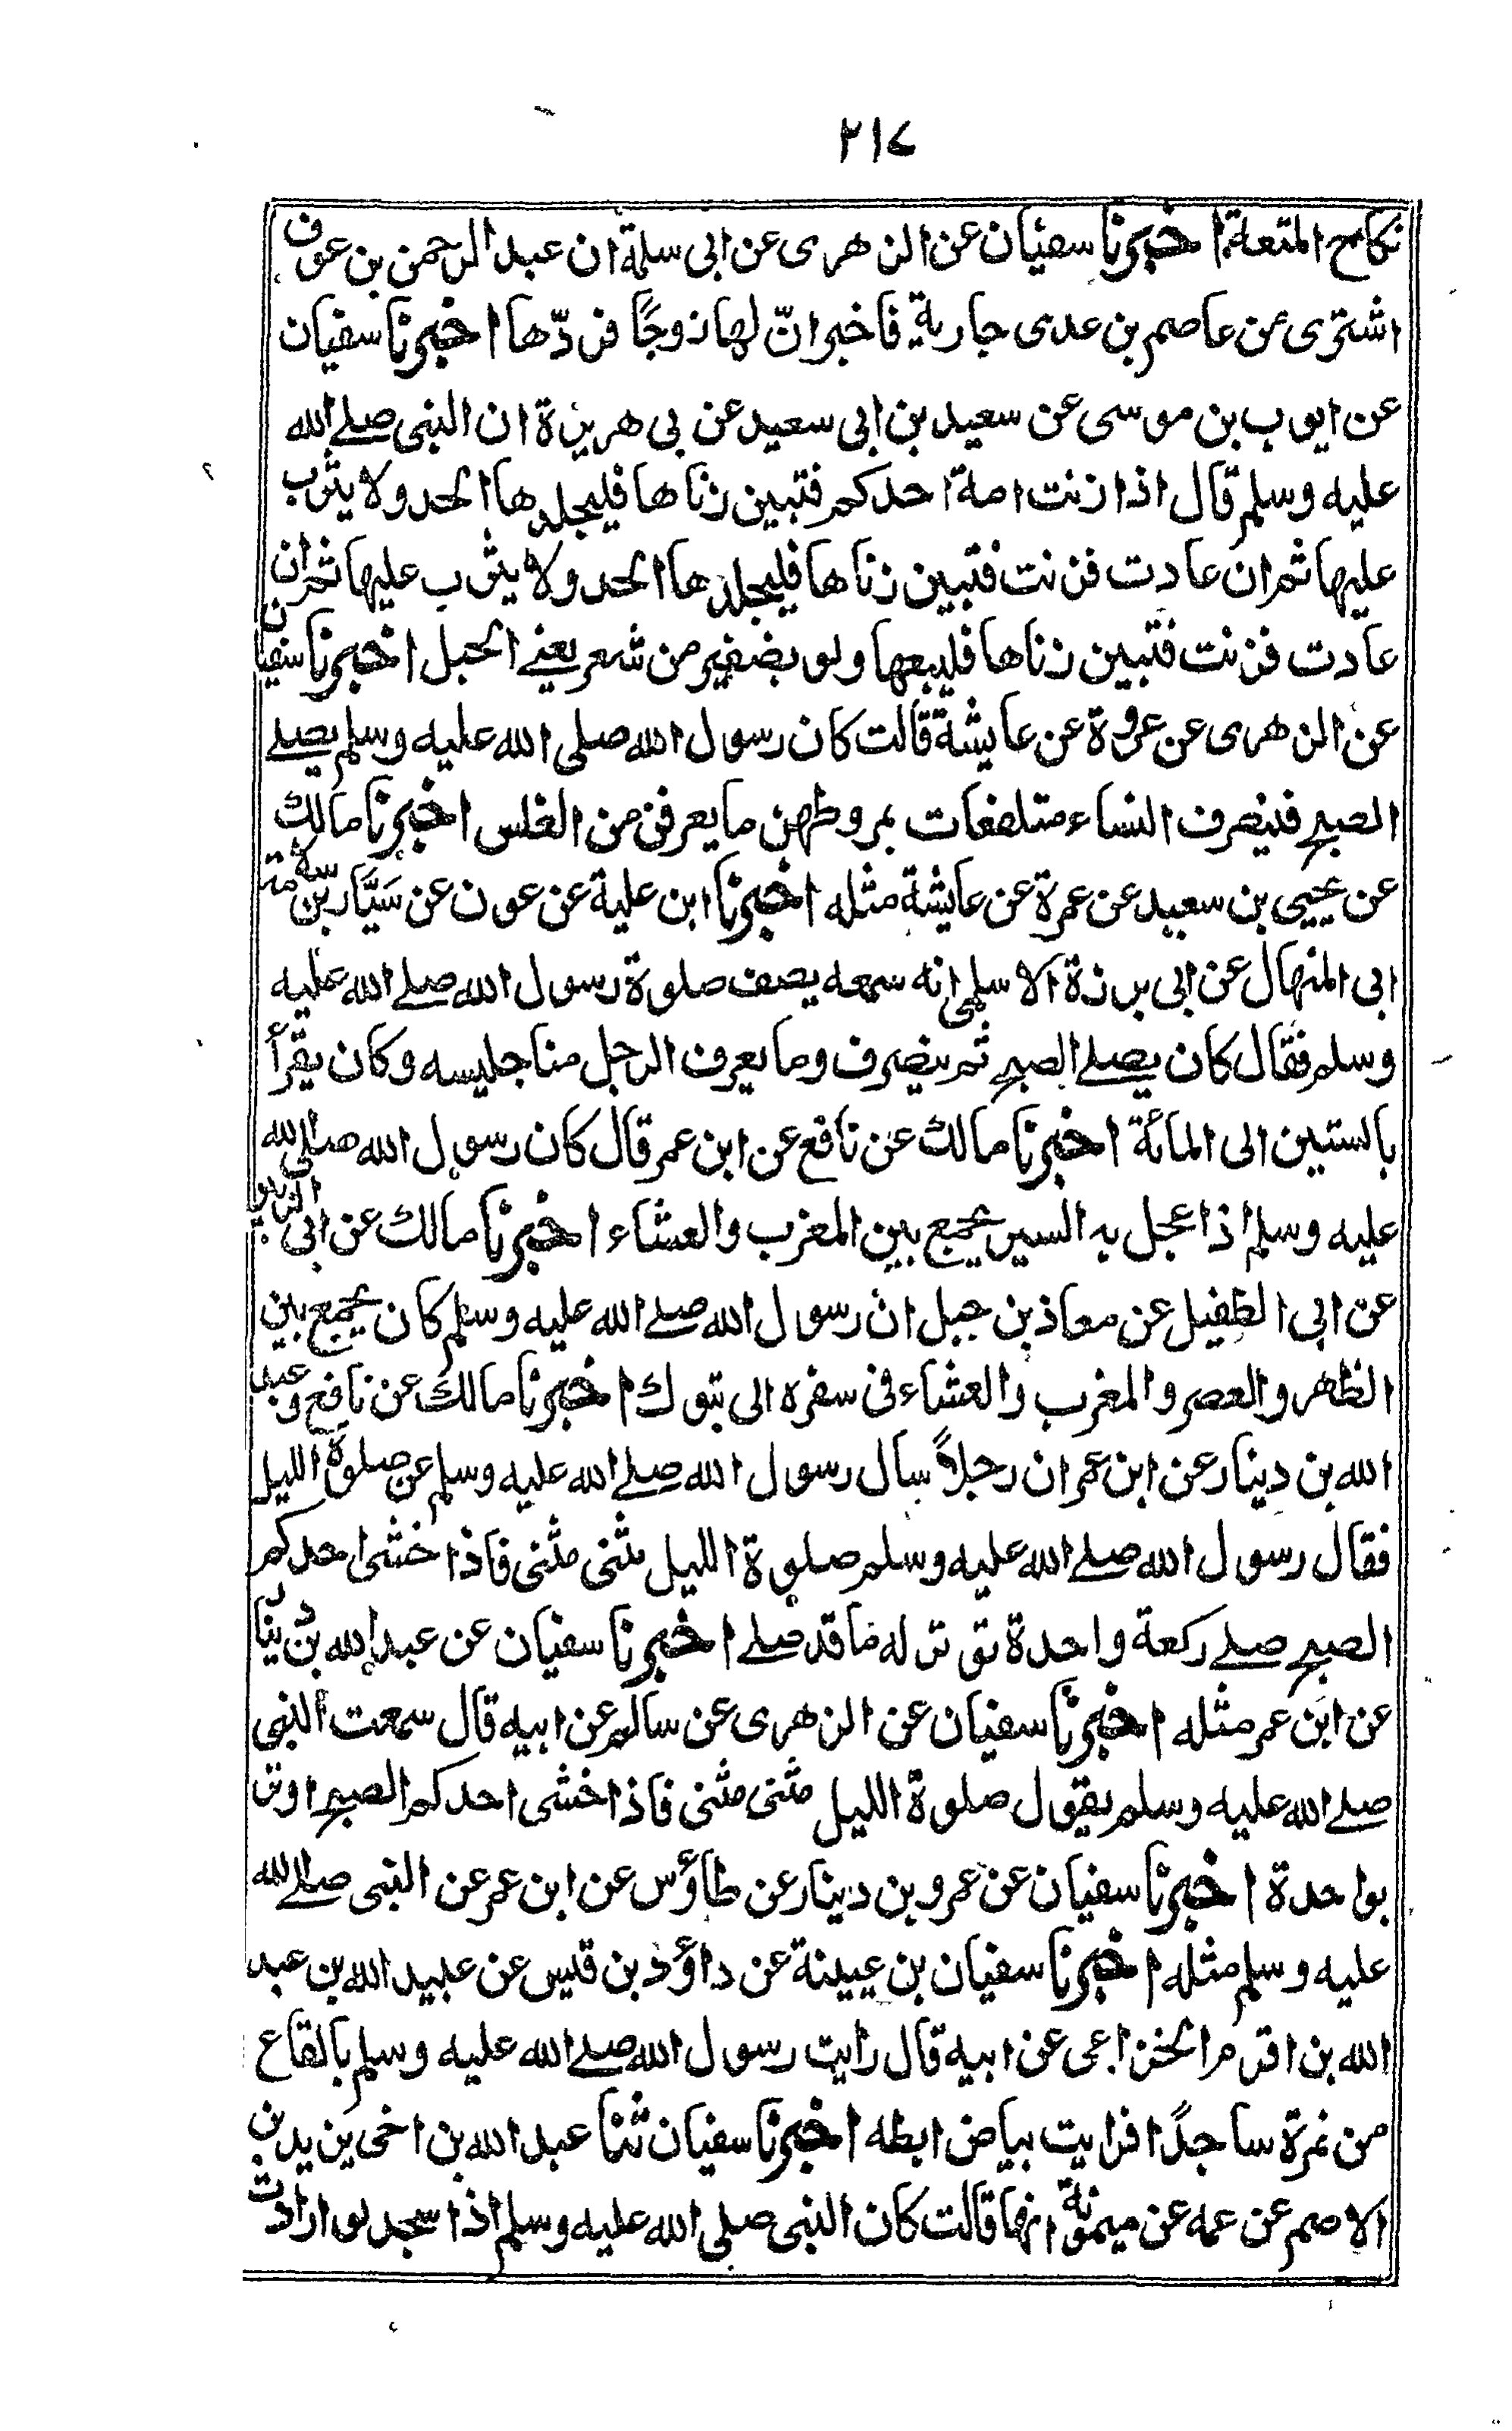 ٢١٧
نكاح المتعة اخبرنا سفيان عن الزهرى عن ابى سلمة ان عبد الرحمن بن عوف
اشترى من عاصم بن عدى جارية فاخبر انّ لها زوجًا فردّها اخبرنا سفيان
عن ايوب بن موسى عن سعيد بن ابى سعيد عن بى هريرة ان النبى صلے الله
عليه وسلم قال اذا زنت امة احدكم فتبين زناها فليجلدها الحد ولا يثرب
عليها ثم ان عادت فزنت فتبين زناها فليجلدها الحد ولا يثرب عليها ثم ان
عادت فزنت فتبين زناها فليبعها ولو بضفير من شعر يعنے الحبل اخبرنا سفيان
عن الزهرى عن عروة عن عايشة قالت كان رسول الله صلى الله عليه وسلم يصلے
الصبح فينصرف النساء متلفعات بمروطهن ما يعرفن من الغلس اخبرنا مالك
عن يحيى بن سعيد عن عمرة عن عايشة مثله اخبرنا ابن علية عن عون عن سَيَّار بن سلامة
ابى المنهال عن ابى برزة الاسلمى انه سمعه يصف صلوة رسول الله صلے الله عليه
وسلم فقال كان يصلے الصبح ثم ينصرف وما يعرف الرجل منا جليسه وكان يقرأ
بالستين الى المائة اخبرنا مالك عن نافع عن ابن عمر قال كان رسول الله صلى الله
عليه وسلم اذا عجل به السير يجمع بين المغرب والعشاء اخبرنا مالك عن ابى الزبير
عن ابى الطفيل عن معاذ بن جبل ان رسول الله صلے الله عليه وسلم كان يجمع بين
الظهر والعصر والمغرب والعشاء فى سفره الى تبوك اخبرنا مالك عن نافع وعبد
الله بن دينار عن ابن عمر ان رجلاً سال رسول الله صلے الله عليه وسلم عن صلوة الليل
فقال رسول الله صلے الله عليه وسلم صلوة الليل مثنى مثنى فاذا خشى احدكم
الصبح صلے ركعة واحدة توتر له ما قد صلے اخبرنا سفيان عن عبد الله بن دينار
عن ابن عمر مثله اخبرنا سفيان عن الزهرى عن سالم عن ابيه قال سمعت النبى
صلے الله عليه وسلم يقول صلوة الليل مثنى مثنى فاذا خشى احدكم الصبح اوتر
بواحدة اخبرنا سفيان عن عمرو بن دينار عن طاؤس عن ابن عمر عن النبى صلى الله
عليه وسلم مثله اخبرنا سفيان بن عيينة عن داؤد بن قيس عن عبيد الله بن عبد
الله بن اقرم الخزاعى عن ابيه قال رايت رسول الله صلے الله عليه وسلم بالقاع
من نمرة ساجدًا فرايت بياض ابطه اخبرنا سفيان ثنا عبد الله بن اخى يزيد بن
الاصم عن عمه عن ميمونة انها قالت كان النبى صلى الله عليه وسلم اذا سجد لو ارادت